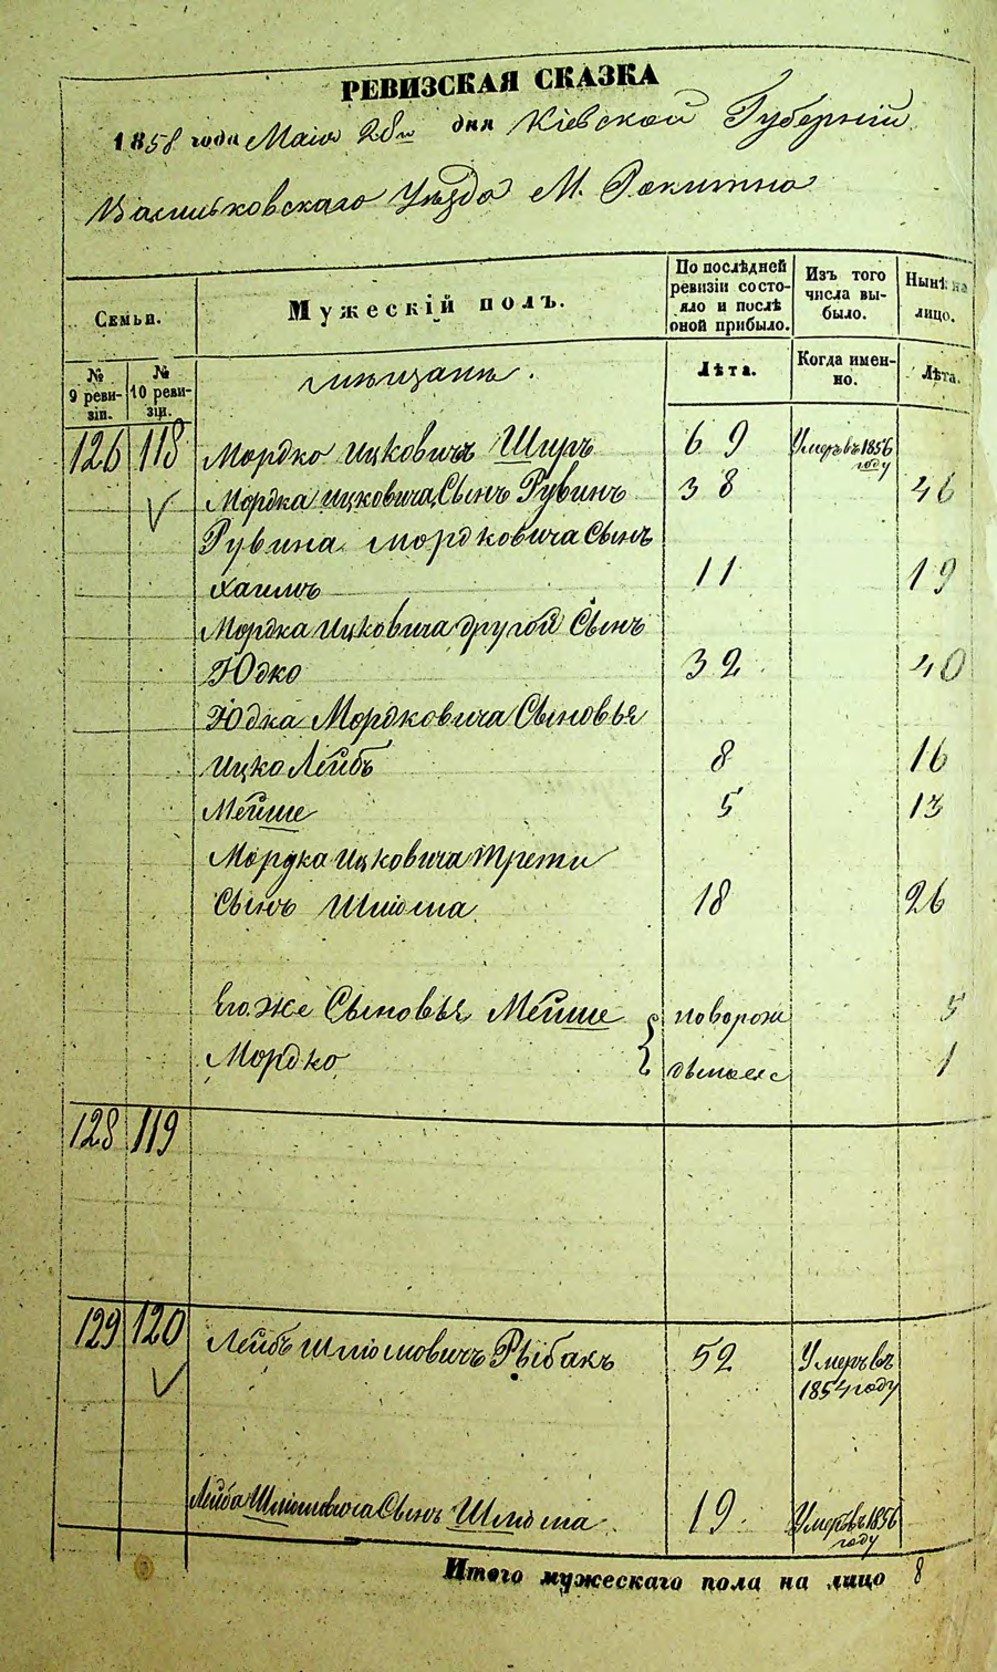 РЕВИЗСКАЯ СКАЗКА
1858 года Маія 28го дня Кіевской Губерніи
Васильковскаго Уѣзда М. Рокитна
Семьи.
Мужескій полъ.
По послѣдней ревизіи состояло и послѣ оной прибыло.
Изъ того числа выбыло.
Нынѣ на лицо.
№ 9 ревизіи.
№ 10 ревизіи.
мѣщане.
Лѣта.
Когда именно.
Лѣта.
126 118 Мордко Ицковичъ Шпугъ 69 Умеръ въ 1856 году
Мордка Ицковича Сынъ Рувинъ 38 46
Рувина Мордковича Сынъ
Хаимъ 11 19
Мордка Ицковича другой Сынъ
Юдко 32 40
Юдка Мордковича Сыновья
Ицко Лейбъ 8 16
Мейше 5 13
Мордка Ицковича трети
Сынъ Шліома 18 26
Его же Сыновья Мейше новорож 5
Мордко деные 1
128 119
129 120 Лейбъ Шліомовичъ Рыбакъ 52 Умеръ въ
1854 году
Лейба Шліомовича Сынъ Шліома 19 Умеръ въ 1856
году
Итого мужескаго пола на лицо 8